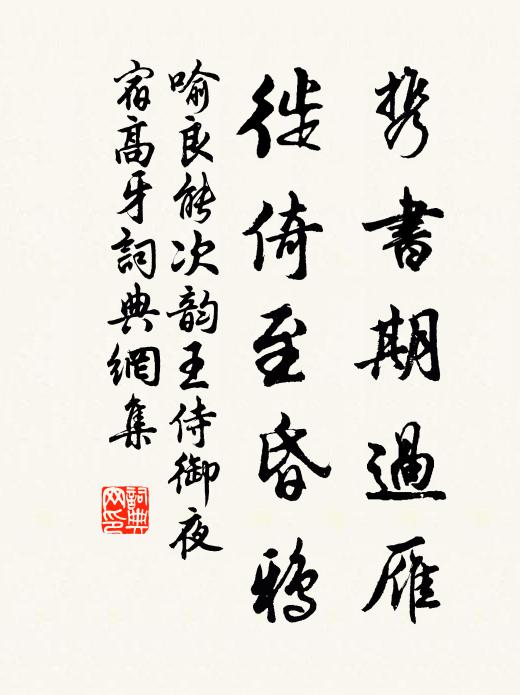 携書期過雁
徙倚至昏鴉
喻良能次韵王侍御夜
宿高牙詞典網集
詞典网印